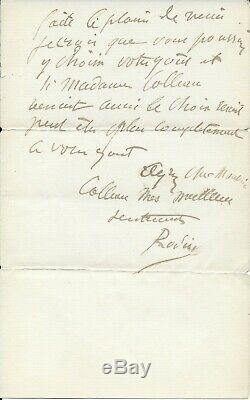 faite le plaisir de venir
je crois que vous pouvez
y choisir votre goût et
si Madame Colleau
venait aussi le choix serait
peut etre plus completement
a votre gout
Cher Monsieur
Colleau mes meilleurs
sentiments
Rodin
ebay